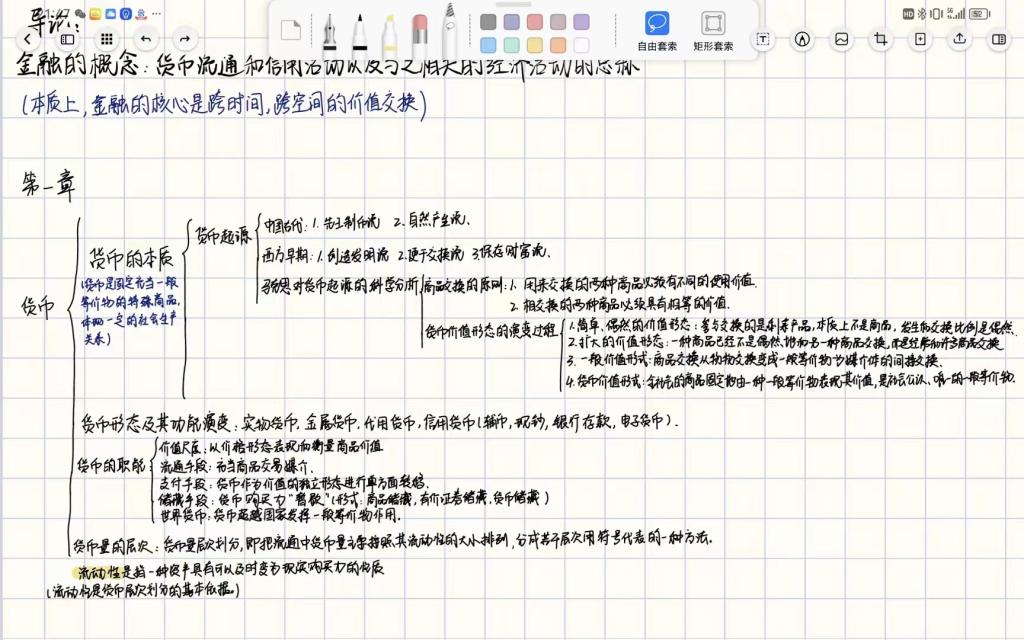 导论:
自由套索
矩形套索
金融的概念:货币流通和信用活动以及与之相关的经济活动的总称
(本质上,金融的核心是跨时间,跨空间的价值交换)
第一章
货币
货币的本质
(货币是固定充当一般
等价物的特殊商品,
体现一定的社会生产
关系)
货币起源
中国古代:1.先王制币说 2.自然产生说.
西方早期:1.创造发明说 2.便于交换说 3.保存财富说.
马克思对货币起源的科学分析
商品交换的原则:1.用来交换的两种商品必须有不同的使用价值.
2.相交换的两种商品必须具有相等的价值.
货币价值形态的演变过程
1.简单、偶然的价值形态:参与交换的是剩余产品,本质上不是商品,发生物交换比例是偶然.
2.扩大的价值形态:一种商品已经不是偶然地和另一种商品交换,而是经常和许多商品交换
3.一般价值形式:商品交换从物物交换变成一般等价物为媒介体的间接交换.
4.货币价值形式:all的商品固定地由一种一般等价物表现其价值,是社会公认、唯一的一般等价物.
货币形态及其功能演变:实物货币,金属货币,代用货币,信用货币(辅币,现钞,银行存款,电子货币).
货币的职能:
价值尺度:以价格形态表现和衡量商品价值
流通手段:充当商品交易媒介.
支付手段:货币作为价值的独立形态进行单方面转移.
储藏手段:货币购买力“暂歇”(形式:商品储藏,有价证券储藏,货币储藏)
世界货币:货币超越国家发挥一般等价物作用.
货币量的层次:货币量层次划分,即把流通中货币量主要按照其流动性的大小排列,分成若干层次用符号代表的一种方法.
流动性是指一种资产具有可以及时变为现实购买力的性质
(流动性是货币层次划分的基本依据。)